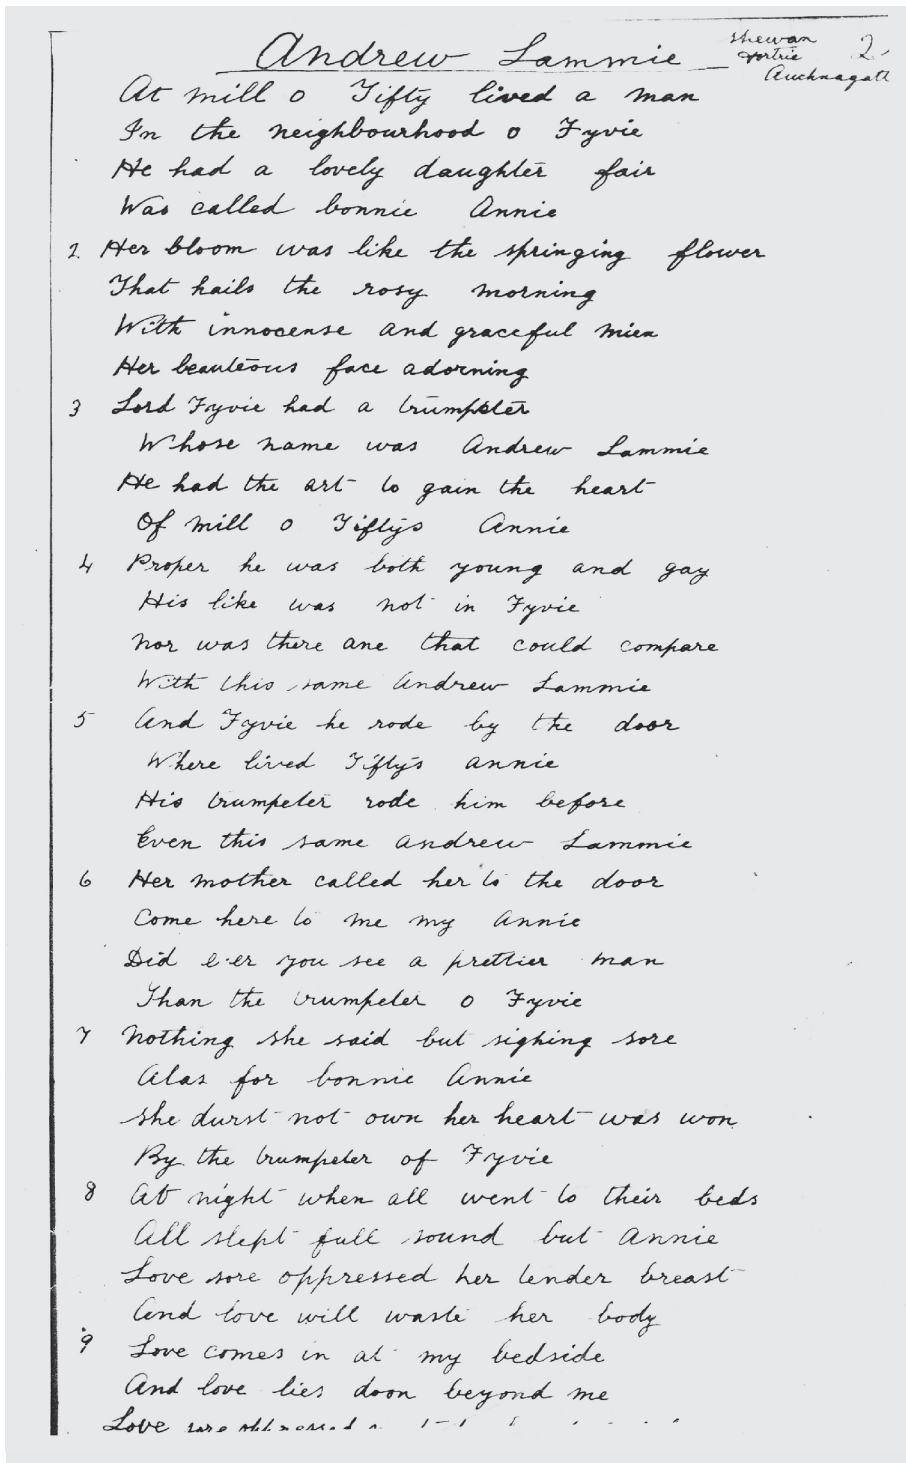 Andrew Lammie
Shewan 2
Auchnagatt
At mill o Tifty lived a man
In the neighbourhood o Fyvie
He had a lovely daughter fair
Was called bonnie Annie
2. Her bloom was like the springing flower
That hails the rosy morning
With innocense and graceful mien
Her beauteous face adorning
3 Lord Fyvie had a trumpeter
Whose name was Andrew Lammie
He had the art to gain the heart
Of mill o Tiftys Annie
4 Proper he was both young and gay
His like was not in Fyvie
Nor was there ane that could compare
With this same Andrew Lammie
5 And Fyvie he rode by the door
Where lived Tiftys Annie
His trumpeter rode him before
Even this same Andrew Lammie
6 Her mother called her to the door
Come here to me my Annie
Did e'er you see a prettier man
Than the trumpeter o Fyvie
7 Nothing she said but sighing sore
Alas for bonnie Annie
She durst not own her heart was won
By the trumpeter of Fyvie
8 At night when all went to their beds
All slept full sound but Annie
Love sore oppressed her tender breast
And love will waste her body
9 Love comes in at my bedside
And love lies doon beyond me
Love